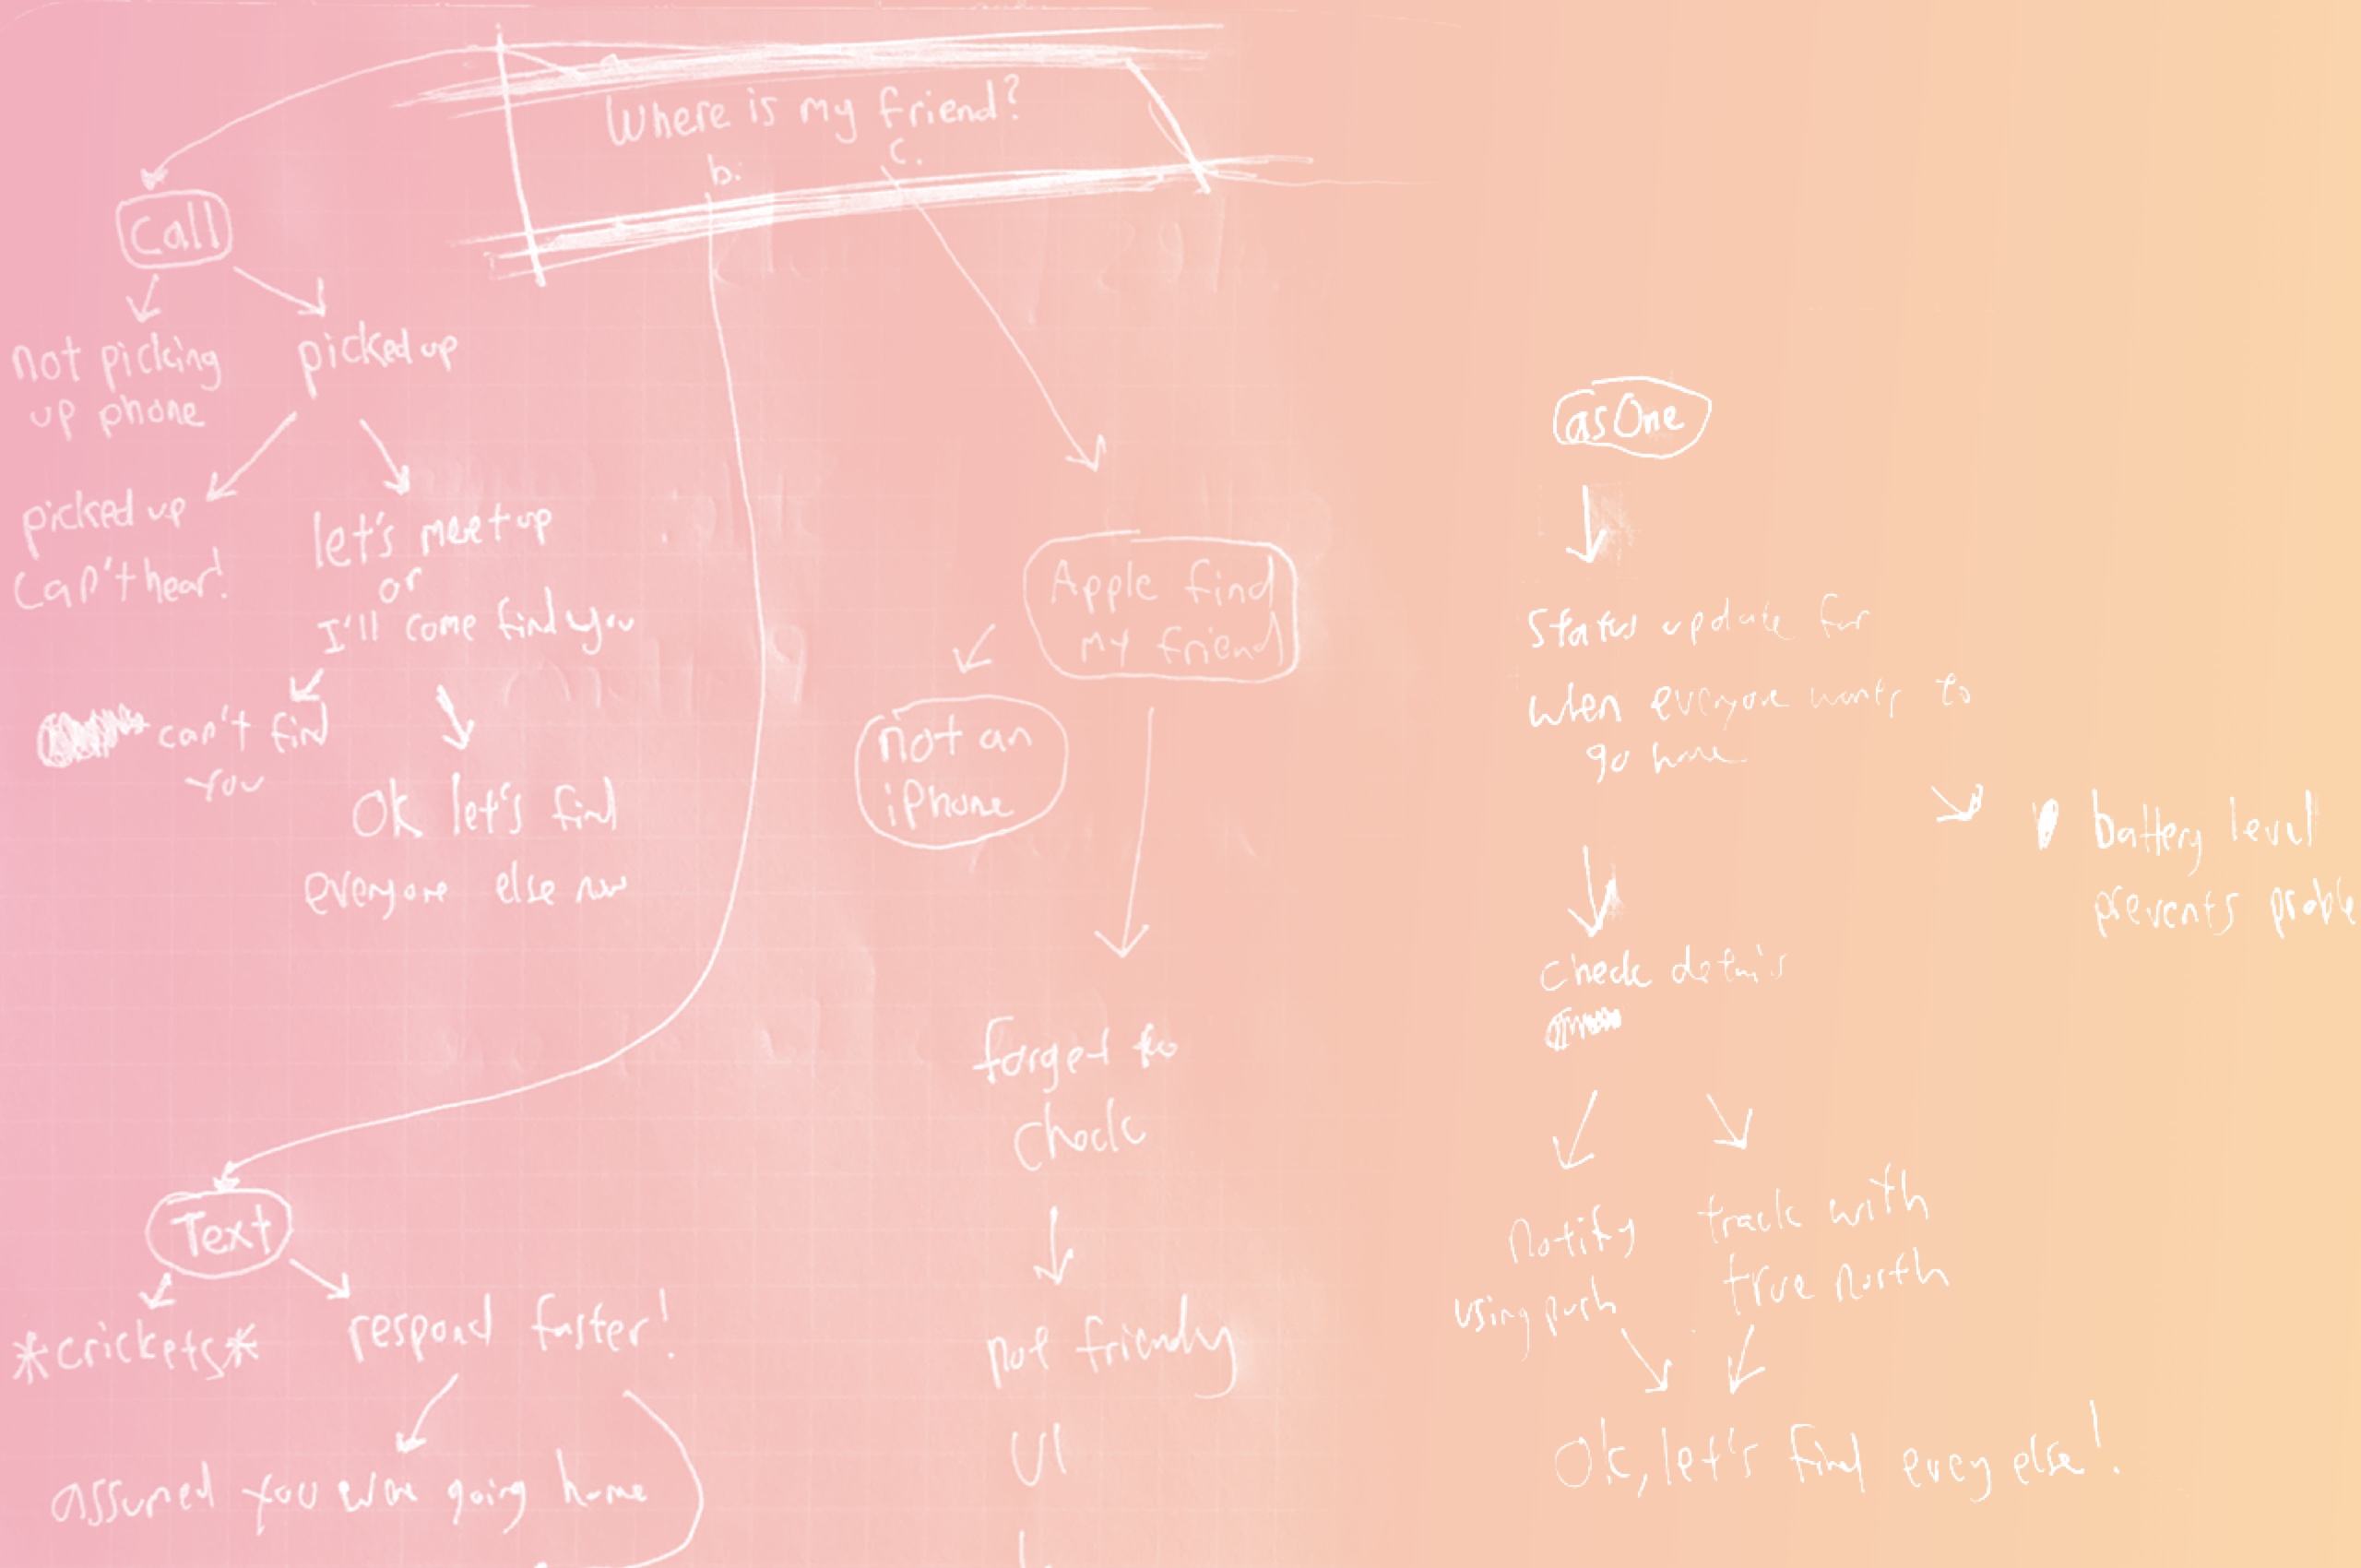 Where is my friend?
b.
c.
Call
not picking
up phone
picked up
picked up
can't hear!
let's meet up
or
I'll come find you
can't find
you
Ok let's find
everyone else now
Text
*crickets*
respond faster!
assumed you were going home
Apple find
my friend
not an
iPhone
forget to
check
not friendly
UI
asOne
status update for
when everyone wants to
go home
battery level
prevents proble
check details
notify
using push
track with
true north
Ok, let's find every else!